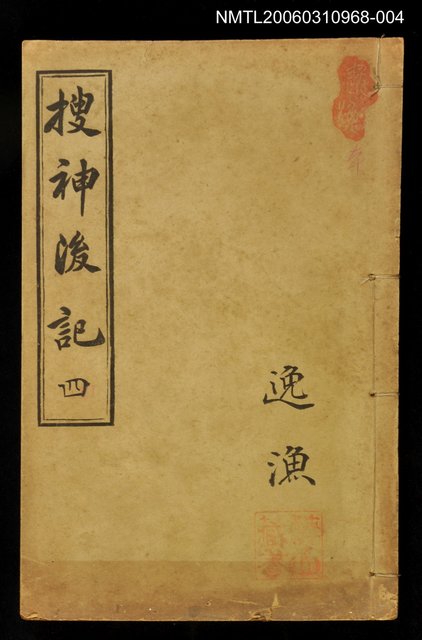 NMTL20060310968-004
搜神後記 四
逸漁